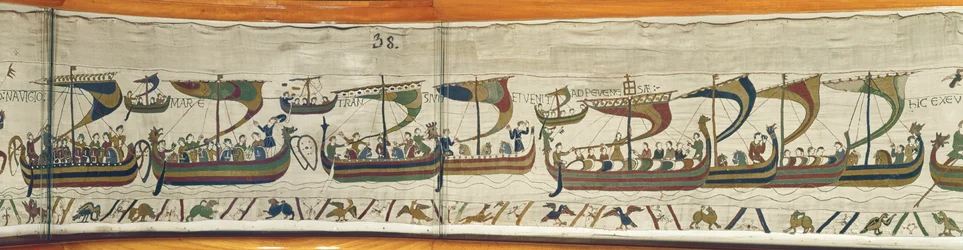 38.
NAVIGIO: MAR E TRAN SIVIT ET VENIT AD PEVENE SÆ:- hIC EXEV